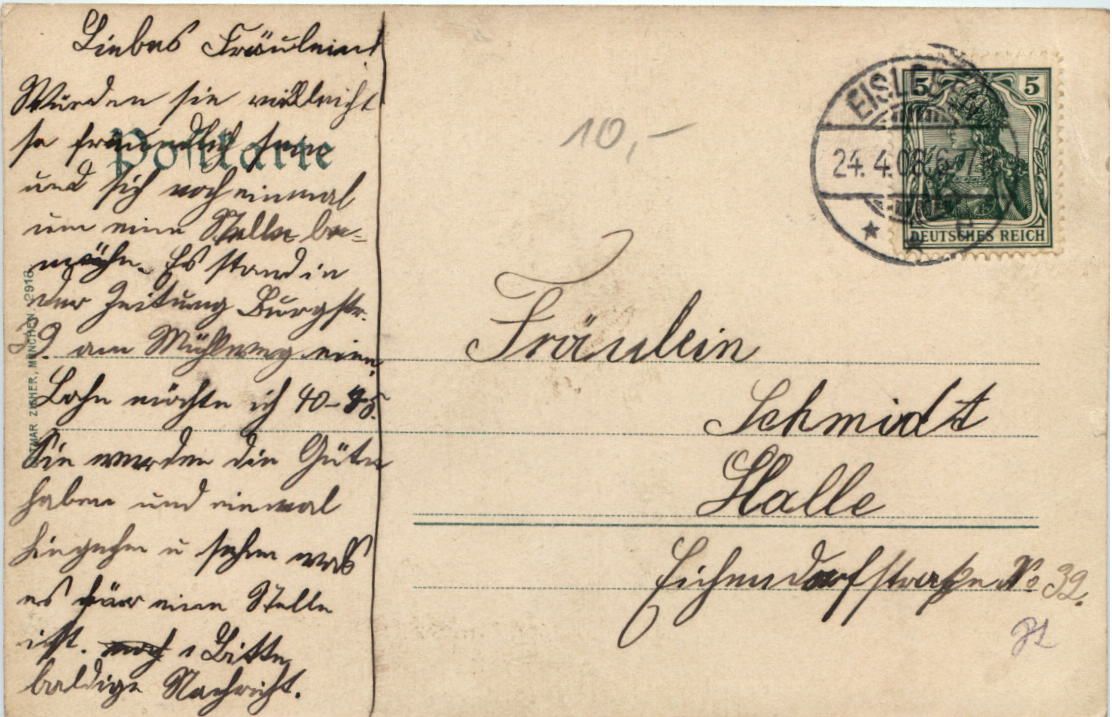 Liebes Fräulein!
Würden sie vielleicht
so freundlich sein
und sich noch einmal
um eine Stelle be=
mühn. Es stand in
der Zeitung Burgstr.
9. am Mühlweg eine.
Lohn möchte ich 40-45.
Sie werden die Güte
haben und einmal
hingehn u sehen was
es für eine Stelle
ist. Bitte
baldige Nachricht.
Postkarte
ZIEHER, MÜNCHEN 2918
10,-
EISLEBEN
24. 4. 08. 6-7
5 5
DEUTSCHES REICH
Fräulein
Schmidt
Halle
Eichendorfstraße No 39.